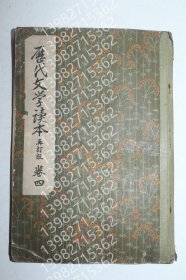 歷代文学读本 再訂版 卷四
13982715362